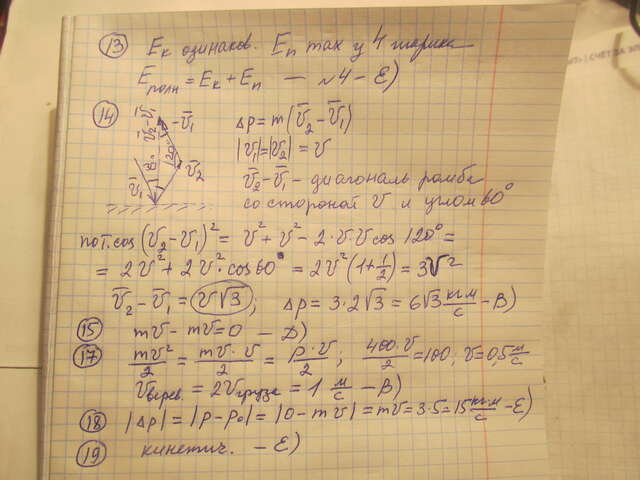 13 Eк одинаков. Eп max у 4 шарика
Eполн = Eк + Eп — №4 – E)
14 v̄₂-v̄₁ -v̄₁ Δp = m(v̄₂ - v̄₁)
|v̄₁|=|v̄₂| = v
v̄₁ 30° 120° v̄₂ v̄₂ - v̄₁ - диагональ ромба
со стороной v и углом 60°
по т. cos (v₂-v₁)² = v² + v² - 2·v·v cos 120° =
= 2v² + 2v²·cos60° = 2v²(1+1/2) = 3v²
v̄₂ - v̄₁ = v√3; Δp = 3·2√3 = 6√3 кг·м/с – B)
15 mv - mv = 0 — Д)
17 mv²/2 = mv·v/2 = p·v/2; 400·v/2 = 100, v = 0,5 м/с
vверев. = 2vгруза = 1 м/с – B)
18 |Δp| = |p - p₀| = |0 - mv| = mv = 3·5 = 15 кг·м/с – E)
19 кинетич. – E)